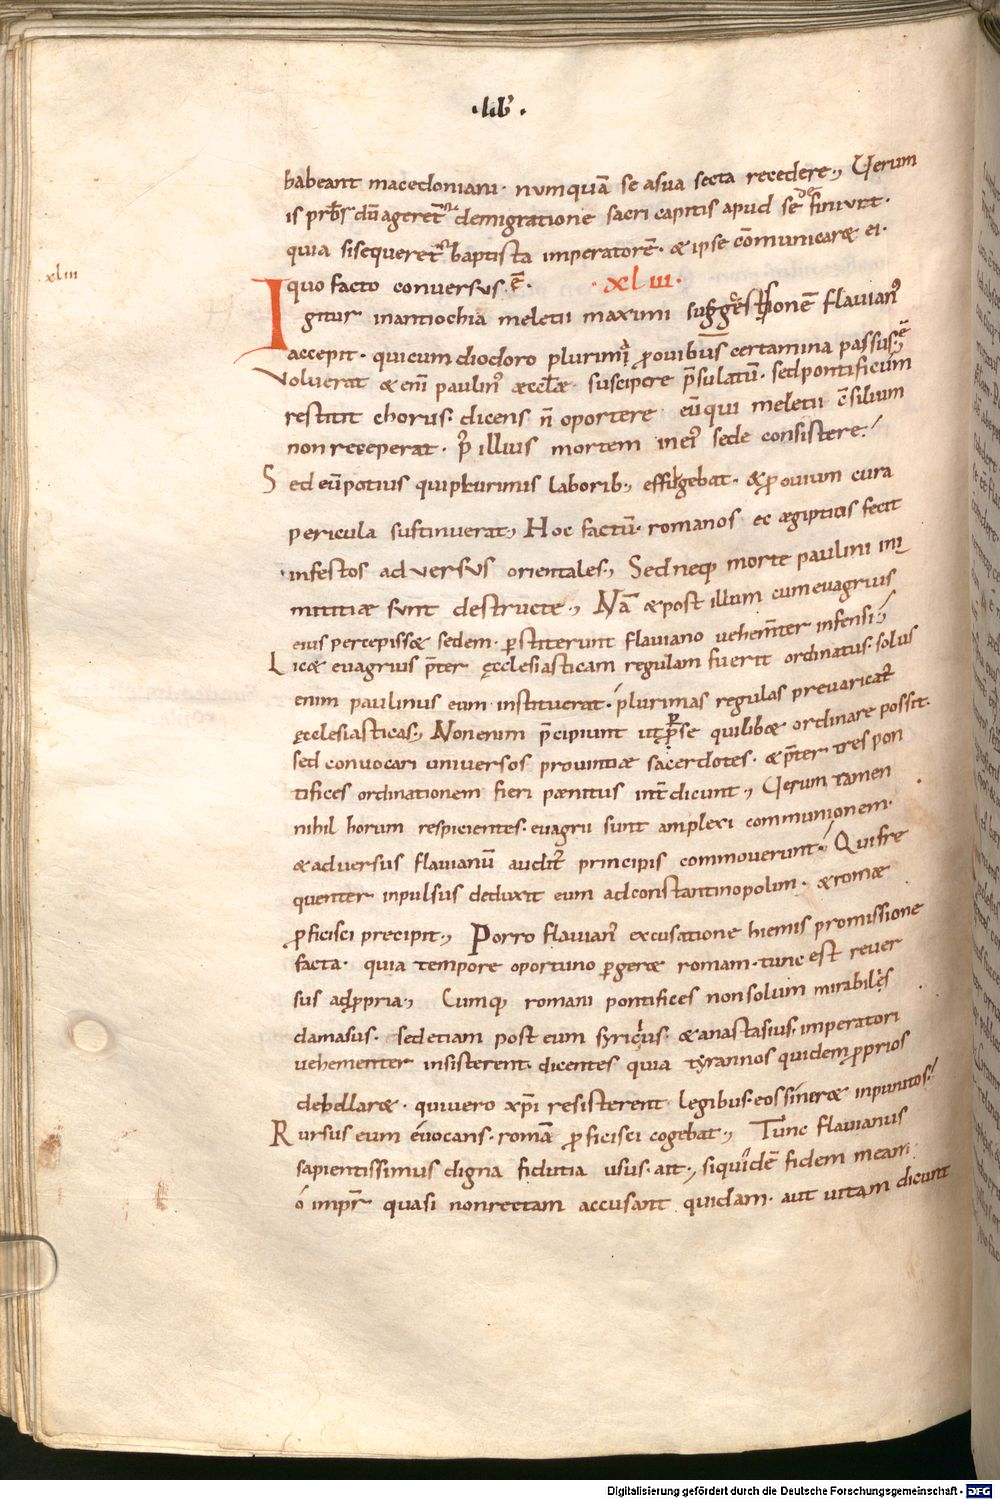 ·lib̄·
habeant macedoniani· numquā se a sua secta recedere, Verum
is prb̄s dū ageret᷑ demigratione sacri capitis apud se definiuit·
quia si sequeret᷑ baptista imperatorē· & ipse cōmunicaret ei·
quo facto conuersus ē· ·xliii·
xliii
Igitur in antiochia meletii maximi suggestionem flauian᷒
accepit· qui cum diodoro plurima ꝓ ouibus certamina passus ē
Voluerat & eni paulin᷒ æccłæ suscipere p̄sulatū· sed pontificum
restitit chorus· dicens n̄ oportere eū qui meletii c̄silium
non receperat· p᷒ illius mortem in ei᷒ sede consistere·
Sed eū potius qui plurimis laborib; effulgebat· & ꝓ ouium cura
pericula sustinuerat, Hoc factū· romanos ec ægiptios fecit
infestos aduersus orientales, Sed neq; morte paulini ini
mitiæ sunt destructe, Nā & post illum cum euagrius
eius percepisset sedem· ꝑstiterunt flauiano uehem̄ter infensi
Licet euagrius p̄ter ęcclesiasticam regulam fuerit ordinatus· solus
enim paulinus eum instituerat· plurimas regulas preuaricat᷒
ęcclesiasticas, Non enim p̄cipiunt ut ꝑ se quilibet ordinare possit·
sed conuocari uniuersos prouintiæ sacerdotes· & p̄ter tres pon
tifices ordinationem fieri pænitus int̄dicunt, Verum tamen
nihil horum respicientes· euagrii sunt amplexi communionem·
& aduersus flauianū audit᷒ principis commouerunt· Qui fre
quenter inpulsus deduxit eum ad constantinopolim· & romæ
ꝓficisci precipit, Porro flauian᷒ excusatione hiemis promissione
facta· quia tempore oportuno ꝑgeret romam· tunc est reuer
sus ad ꝓpria, Cumq; romani pontifices non solum mirabilis
damasus· sed etiam post eum syricius· & anastasius· imperatori
uehementer insisterent· dicentes quia tyrannos quidem ꝓprios
debellaret· qui uero xp̄i resisterent legibus· eos sineret inpunitos·
Rursus eum euocans· romā ꝓficisci cogebat, Tunc flauianus
sapientissimus digna fidutia usus· ait, siquidē fidem meam
o impr̄ quasi non rectam accusant quidam· aut uitam dicunt
Digitalisierung gefördert durch die Deutsche Forschungsgemeinschaft - DFG